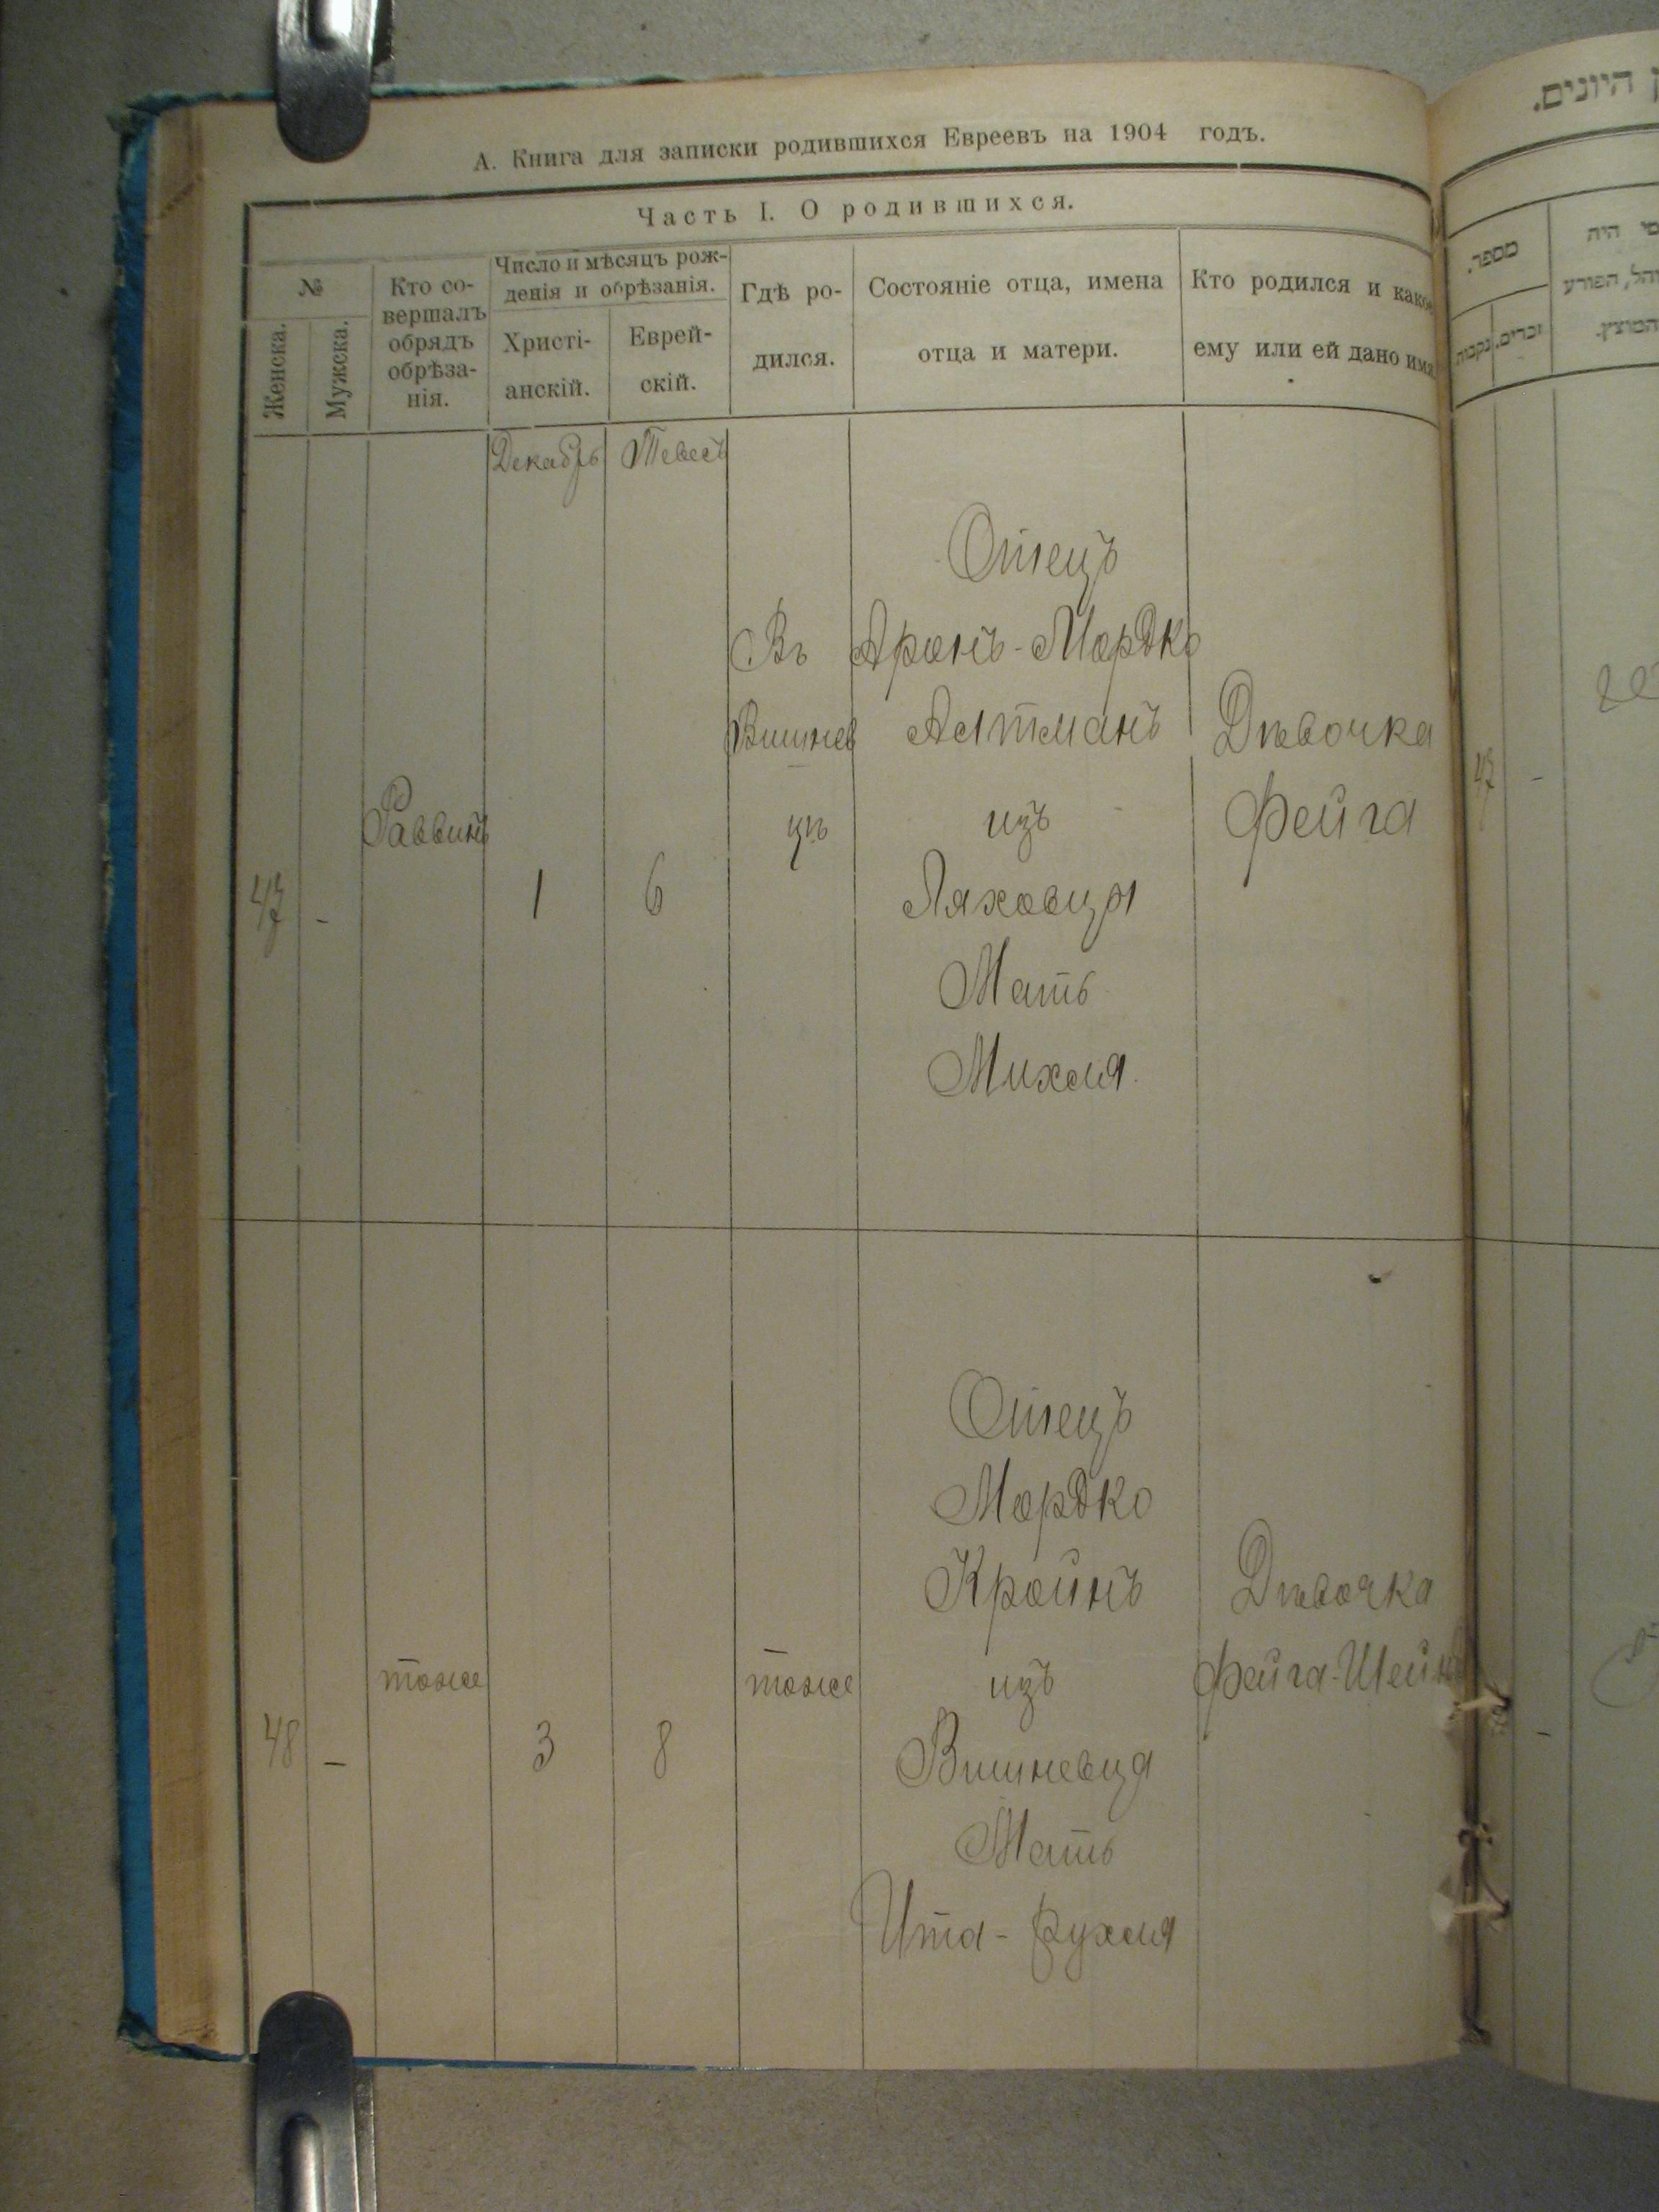 А. Книга для записки родившихся Евреевъ на 1904 годъ.
Часть I. О родившихся.
№
Женска.
Мужска.
Кто со-
вершалъ
обрядъ
обрѣза-
нія.
Число и мѣсяцъ рож-
денія и обрѣзанія.
Христі-
анскій.
Еврей-
скій.
Гдѣ ро-
дился.
Состояніе отца, имена
отца и матери.
Кто родился и какое
ему или ей дано имя
Декабрь
Тевесъ
47
-
Раввинъ
1
6
Въ
Вишнев
цѣ
Отецъ
Аронъ-Мордко
Алтманъ
изъ
Ляховцы
Мать
Михля.
Дѣвочка
Фейга
48
-
тоже
3
8
тоже
Отецъ
Мордко
Кройнъ
изъ
Вишневца
Мать
Ита-Рухля
Дѣвочка
Фейга-Шейн
היונים.
מספר.
נקבות
זכרים.
מי היה
המוצץ.
47
-
-